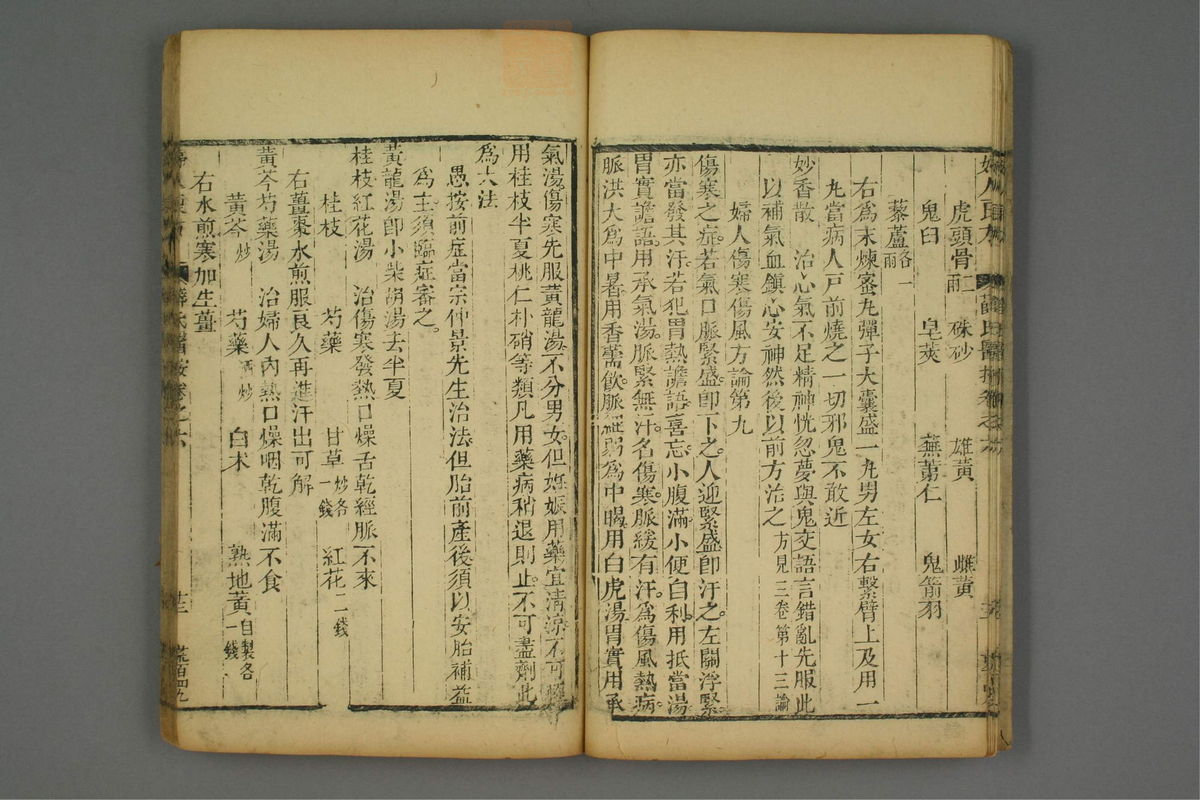 虎頭骨二兩 硃砂 雄黃 雌黃
鬼臼 皂莢 蕪荑仁 鬼箭羽
藜蘆各一兩
右為末煉蜜丸彈子大囊盛一丸男左女右繫臂上及用一
丸當病人戶前燒之一切邪鬼不敢近
妙香散 治心氣不足精神恍忽夢與鬼交語言錯亂先服此
以補氣血鎮心安神然後以前方治之方見三卷第十三論
婦人傷寒傷風方論第九
傷寒之症若氣口脈緊盛即下之人迎緊盛即汗之左關浮緊
亦當發其汗若犯胃熱譫語喜忘小腹滿小便自利用抵當湯
胃實譫語用承氣湯脈緊無汗名傷寒脈緩有汗為傷風熱病
脈洪大為中暑用香薷飲脈細弱為中暍用白虎湯胃實用承
氣湯傷寒先服黃龍湯不分男女但妊娠用藥宜清涼不可
用桂枝半夏桃仁朴硝等類凡用藥病稍退則止不可盡劑此
為大法
愚按前症當宗仲景先生治法但胎前產後須以安胎補益
為主須臨症審之
黃龍湯即小柴胡湯去半夏
桂枝紅花湯 治傷寒發熱口燥舌乾經脈不來
桂枝 芍藥 甘草炒各一錢 紅花二錢
右薑棗水煎服良久再進汗出可解
黃芩芍藥湯 治婦人內熱口燥咽乾腹滿不食
黃芩炒 芍藥酒炒 白朮 熟地黃自製各一錢
右水煎寒加生薑